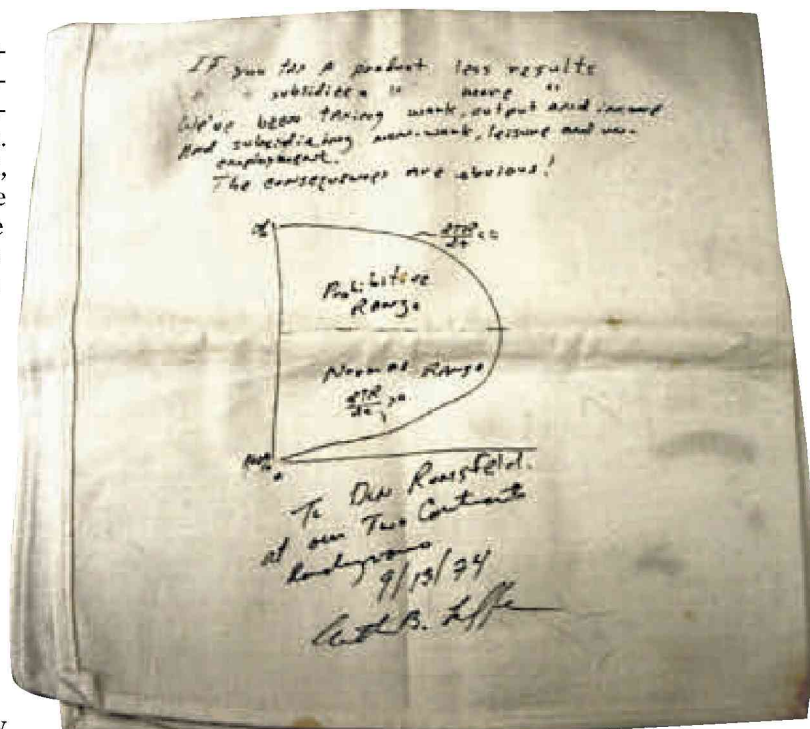 If you tax a product less results
" " subsidize " " more "
We've been taxing work, output and income
and subsidizing non-work, leisure and un-
employment.
The consequences are obvious!
dTR/dt < 0
Prohibitive
Range
Normal Range
dTR/dt > 0
To Don Rumsfeld.
at our Two Continents
Rendezvous
9/13/74
Arthur B. Laffer